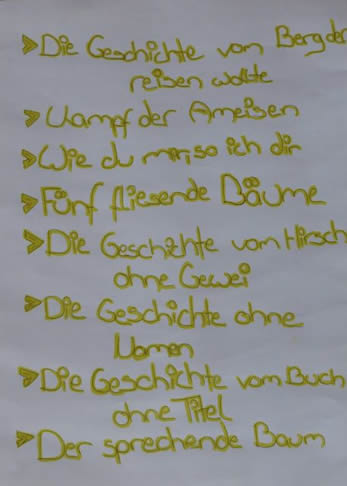 > Die Geschichte vom Berg der
reisen wollte
> Kampf der Ameisen
> Wie du mir, so ich dir
> Fünf fliesende Bäume
> Die Geschichte vom Hirsch
ohne Gewei
> Die Geschichte ohne
Namen
> Die Geschichte vom Buch
ohne Titel
> Der sprechende Baum